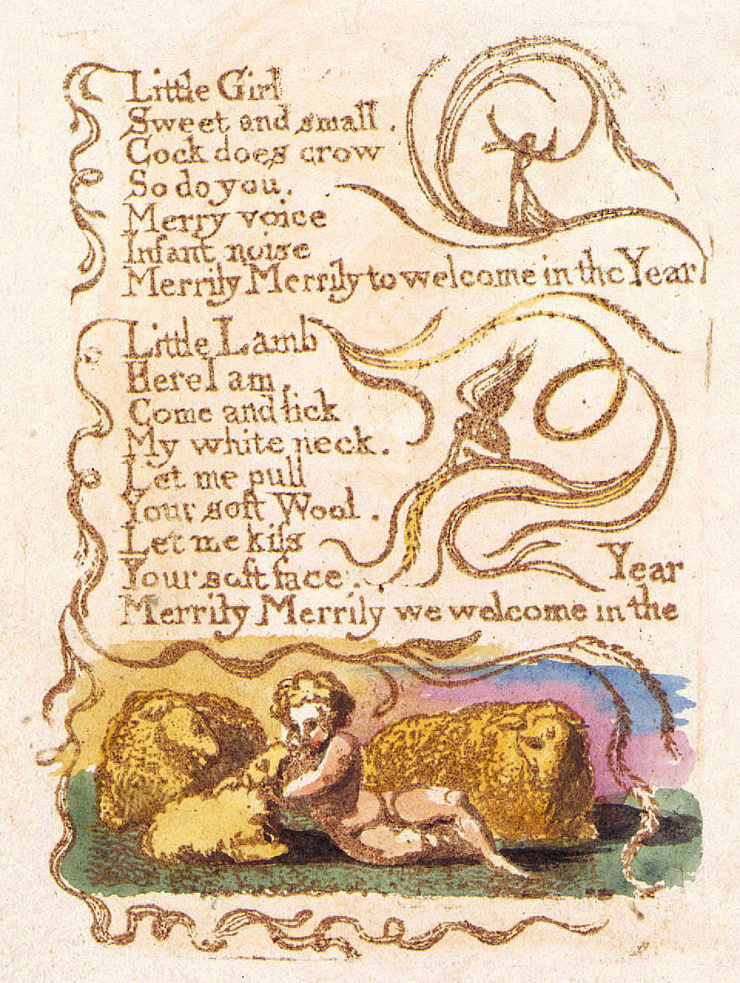 Little Girl
Sweet and small.
Cock does crow
So do you.
Merry voice
Infant noise
Merrily Merrily to welcome in the Year
Little Lamb
Here I am,
Come and lick
My white neck.
Let me pull
Your soft Wool.
Let me kiſs
Your soft face.
Year
Merrily Merrily we welcome in the